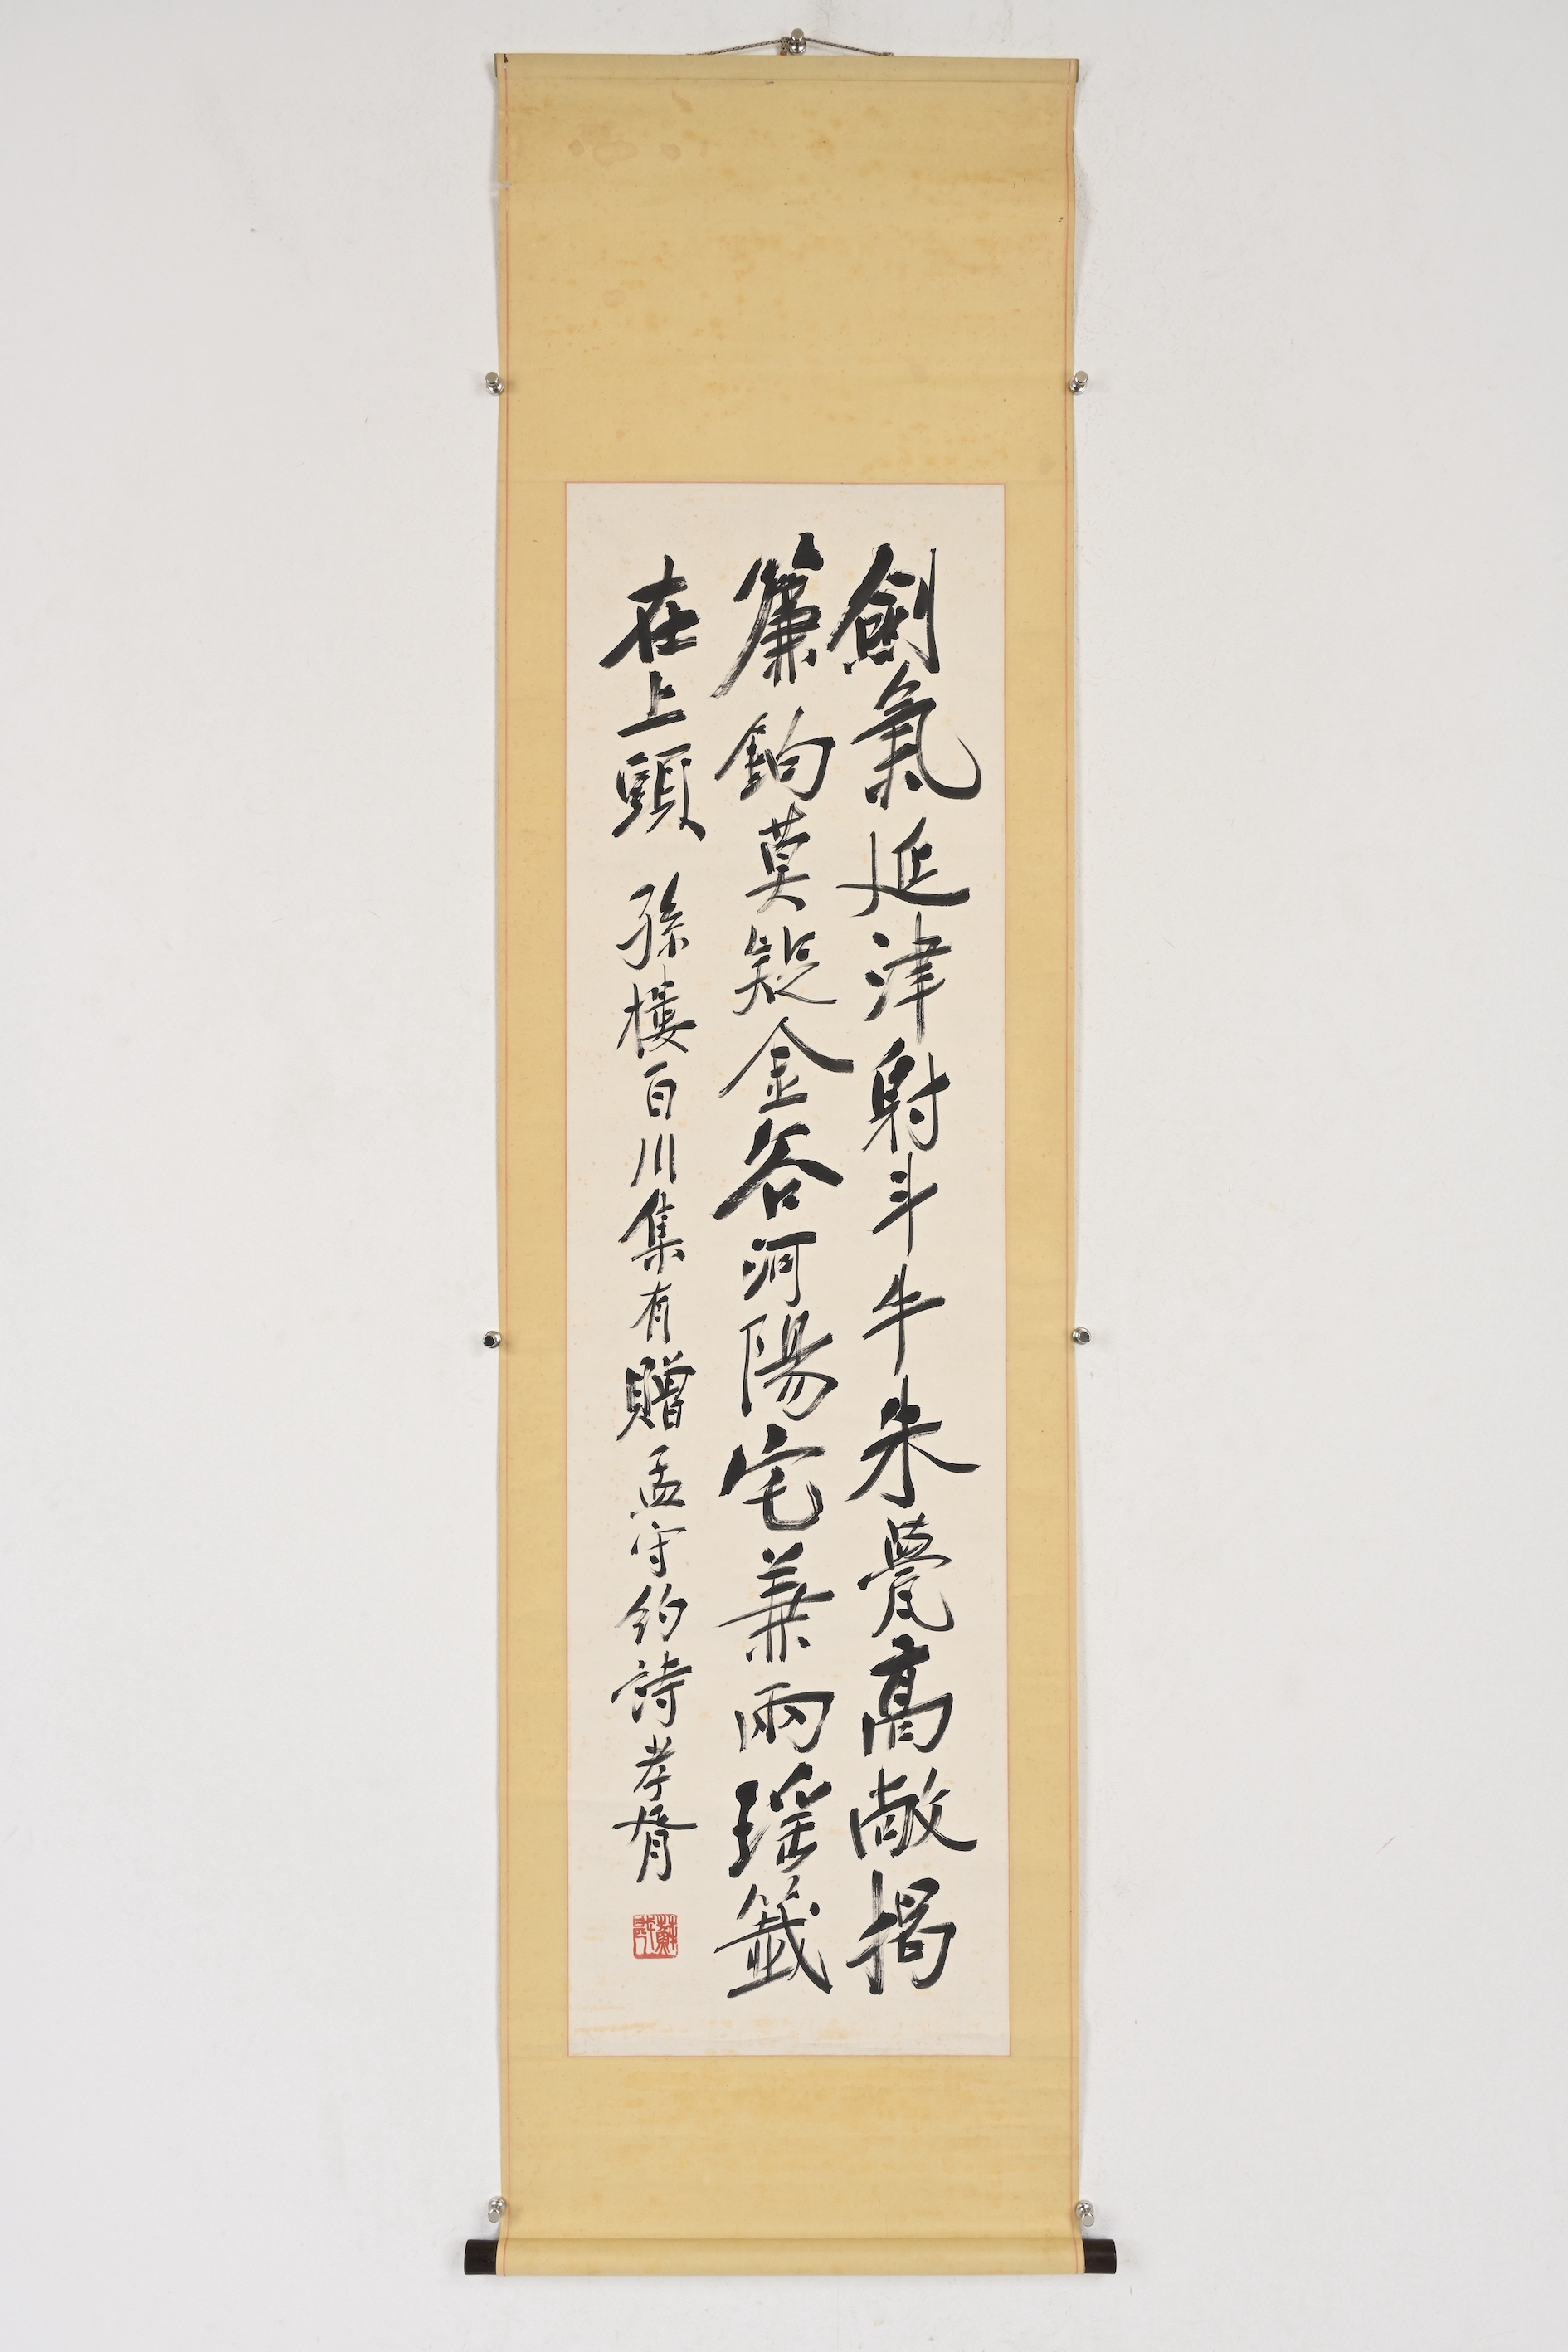 劍氣延津射斗牛朱甍高敞揭
簾鉤莫疑金谷河陽宅兼兩瑤籤
在上頭 孫樓百川集有贈孟守約詩孝胥
蘇戡